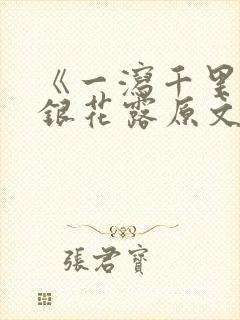 《一瀉千里
銀花露原文
張君寶